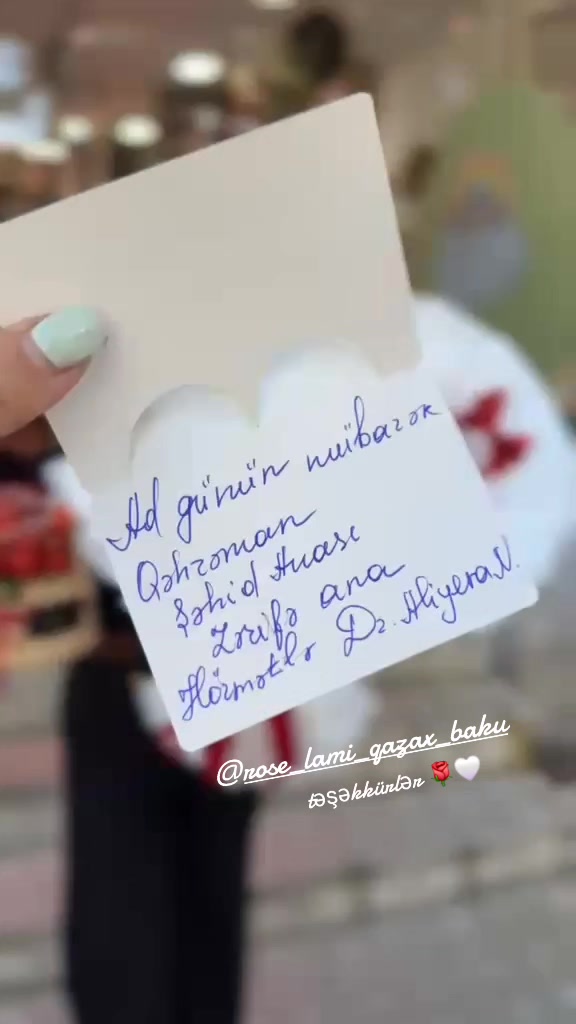 Ad günün mübarək
Qəhrəman
Şəhid Anası
Zərifə ana
Hörmətlə Dr. Aliyeva N.
@rose_lami_qazax_baku
təşəkkürlər 🌹🤍